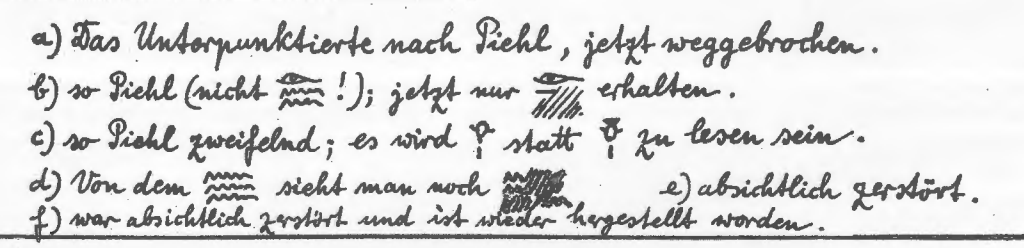 a) Das Unterpunktierte nach Piehl, jetzt weggebrochen.
b) so Piehl (nicht !); jetzt nur erhalten.
c) so Piehl zweifelnd; es wird statt zu lesen sein.
d) Von dem sieht man noch e) absichtlich zerstört.
f) war absichtlich zerstört und ist wieder hergestellt worden.